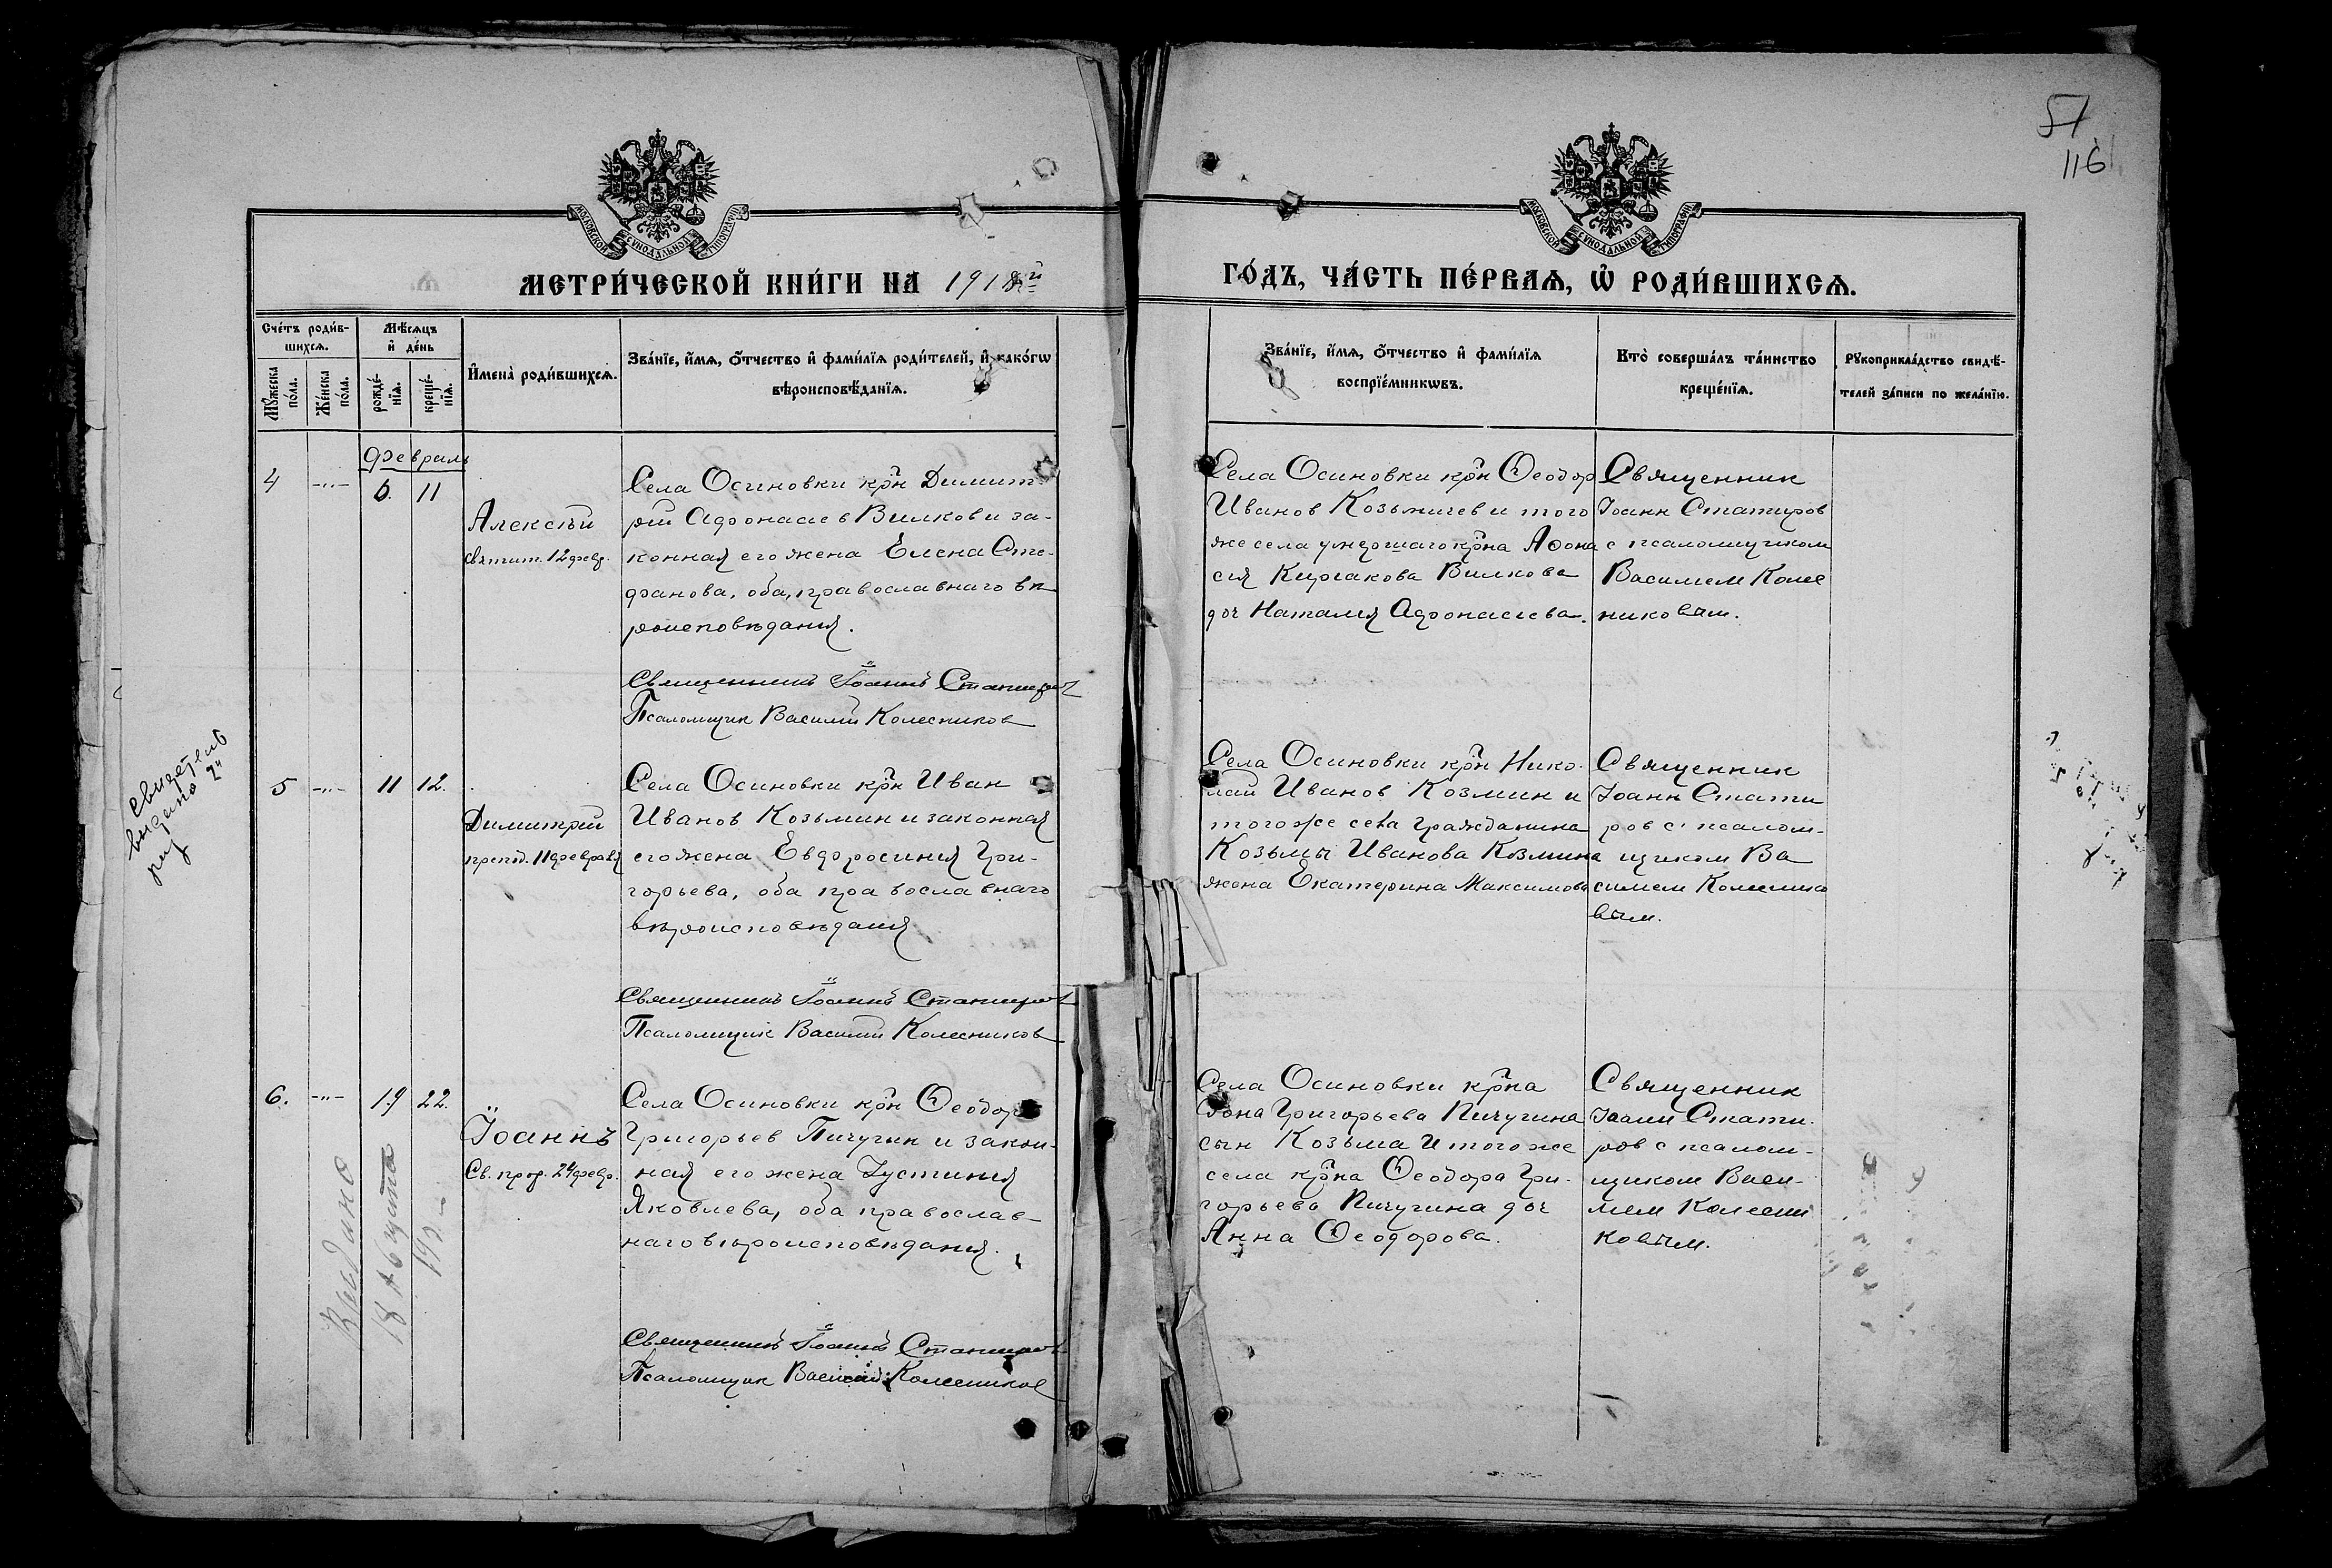 51
116
МОСКОВСКОЙ СѴНОДАЛЬНОЙ ТИПОГРАФІИ
МОСКОВСКОЙ СѴНОДАЛЬНОЙ ТИПОГРАФІИ
МЕТРИ́ЧЕСКОЙ КНИ́ГИ НА 1918й
ГО́ДЪ, ЧА́СТЬ ПЕ́РВАѦ, Ѡ҆ РОДИ́ВШИХСѦ.
Сче́тъ роди́в-
шихсѧ.
Мꙋ́жеска по́ла.
Же́нска по́ла.
Мѣ́сѧцъ
и҆ де́нь
рожде́-
нїѧ.
креще́-
нїѧ.
И҆мена̀ роди́вшихсѧ.
Зва́нїе, и҆́мѧ, ѻ҆́тчество и҆ фами́лїѧ роди́телей, и҆ како́гѡ
вѣроисповѣ́данїѧ.
Зва́нїе, и҆́мѧ, ѻ҆́тчество и҆ фами́лїѧ
воспрїе́мникѡвъ.
Кто̀ соверша́лъ та́инство
креще́нїѧ.
Рꙋкоприкла́дство свидѣ́-
телей за́писи по жела́нїю.
Февраль
4 -"- 6. 11
Алексѣй
Святит. 12 февр.
Села Осиновки крн Димит-
рій Афонасьев Вилков и за-
конная его жена Елена Сте-
фанова, оба, православнаго вѣ
роисповѣдания.
Священникъ Іоаннъ Статиров
Псаломщик Василий Колесников
Села Осиновки крн Ѳеодор
Иванов Козьмичев и того
же села умершаго крна Афона
сия Кирсакова Вилкова
доч Наталия Афонасиева.
Священник
Іоанн Статиров
с псаломщиком
Василием Коле
никовым.
свидетель
выдано 2й
раз
5 -"- 11 12.
Димитрий
препод. 11 февраля
Села Осиновки крн Иван
Иванов Козьмин и законная
его жена Евдоросиния Гри-
горьева, оба православнаго
вѣроисповѣдания
Священникъ Іоаннъ Статиров
Псаломщик Василий Колесников
Села Осиновки крн Нико-
лай Иванов Козмин и
того же села гражданина
Козьмы Иванова Козмина
жена Екатерина Максимова
Священник
Іоанн Стати
ров с псалом-
щиком Ва
силием Колеснико
вым.
6. -"- 19 22.
Іоаннъ
Св. прор. 24 февр.
Выдано
18 Августа
Села Осиновки крн Ѳеодор
Григорьев Пичугин и закон-
ная его жена Іустиния
Яковлева, оба православ-
наго вѣроисповѣдания.
Священникъ Іоаннъ Статиров
Псаломщик Василий Колесников
Села Осиновки крна
Іона Григорьева Пичугина
сын Козьма и того же
села крна Ѳеодора Гри-
горьева Пичугина доч
Анна Ѳеодорова.
Священник
Іоанн Стати-
ров с псалом-
щиком Васи-
лием Колесни
ковым.